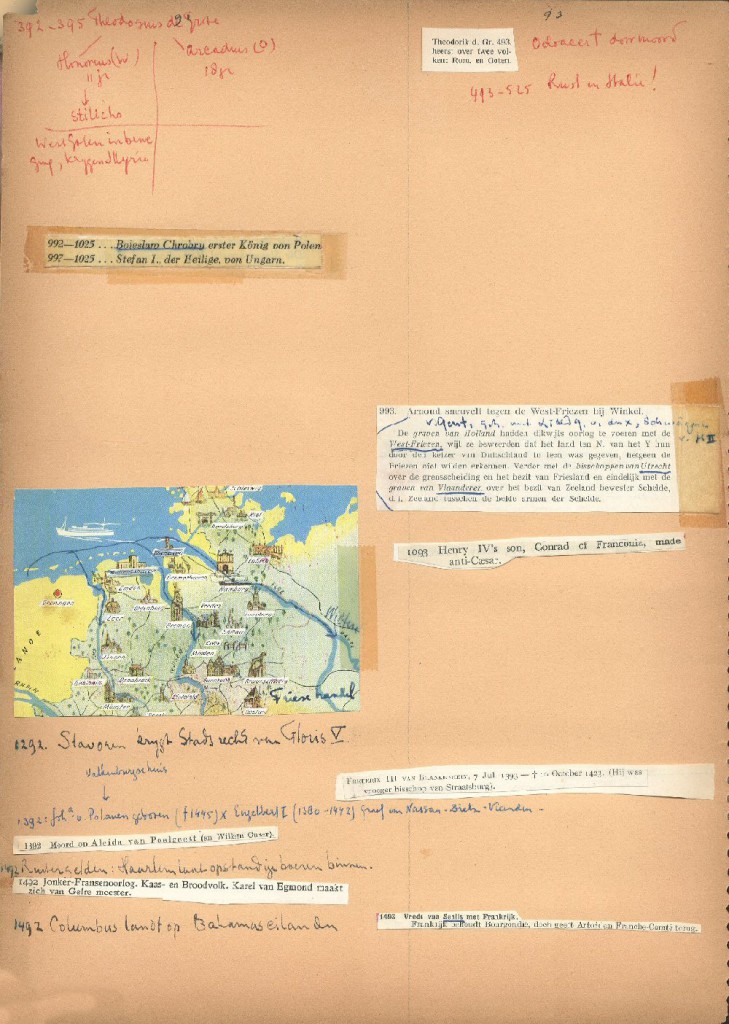 392-395 Theodosius de Grote
Honorius (W) Arcadius (O)
11 jr 18 jr
Stilicho
West Goten in bewe
ging, krygend Illyrie
992—1025 . . . Boleslaw Chrobry erster König von Polen
997—1025 . . . Stefan I., der Heilige, von Ungarn.
Groningen
Emden
Leer
Oldenburg
Bremen
Hamburg
Lübeck
Kiel
Rendsburg
Osnabrück
Münster
Minden
Friese handel
1292. Stavoren krygt Stadsrecht van Floris V
Valkenburgschuis
1392: Joha v. Polanen geboren († 1445) x Engelbert I (1380-1442) Graaf van Nassau-
1392 Moord op Aleida van Poelgeest (en Willem Cuser).
1492 Ruitergelden: Haarlem laat opstandige boeren binnen.
1492 Jonker-Fransenoorlog. Kaas- en Broodvolk. Karel van Egmond maakt
zich van Gelre meester.
1492 Columbus landt op Bahamas eilanden
93
Theodorik d. Gr. 493
heerst over twee vol-
ken: Rom. en Goten.
Odoacer † doormoord
493-525 Rust in Italie!
993. Arnoud sneuvelt tegen de West-Friezen bij Winkel.
v. Gent,
De graven van Holland hadden dikwijls oorlog te voeren met de
West-Friezen, wijl ze beweerden dat het land ten N. van het Y hun
door den keizer van Duitschland te leen was gegeven, hetgeen de
Friezen niet wilden erkennen. Verder met de bisschoppen van Utrecht
over de grensscheiding en het bezit van Friesland en eindelijk met de
graven van Vlaanderen over het bezit van Zeeland bewester Schelde,
d. i. Zeeland tusschen de beide armen der Schelde.
1093 Henry IV's son, Conrad of Franconia, made
anti-Cæsar.
Frederik III van Blankenheim, 7 Juli 1393 — † 9 October 1423. (Hij was
vroeger bisschop van Straatsburg).
1493 Vrede van Senlis met Frankrijk.
Frankrijk behoudt Bourgondië, doch geeft Artois en Franche-Comté terug.